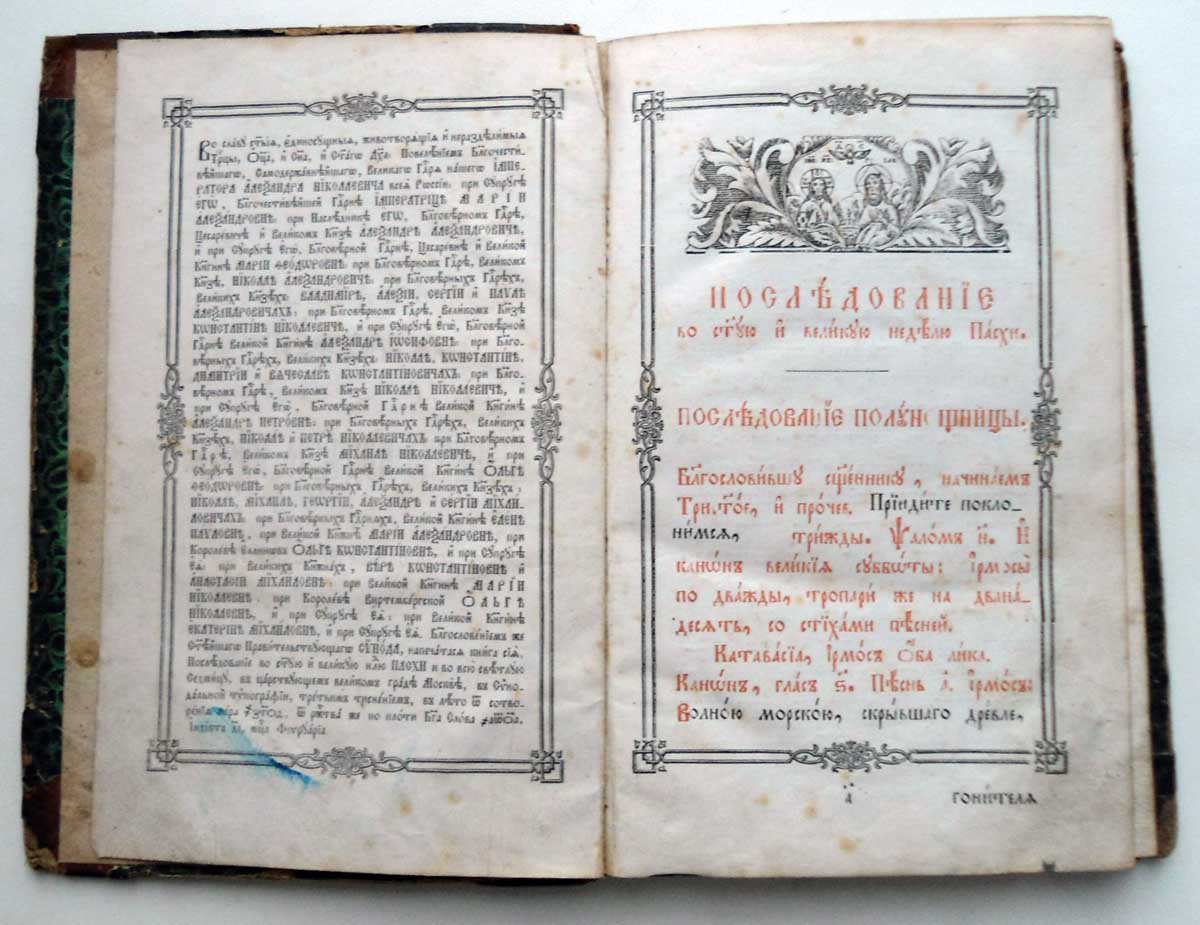 Во славу ст҃ыѧ, є҆диносꙋщныѧ, животворѧщїѧ и҆ нераздѣлимыѧ
Трⷪ҇цы, Ѻ҆ц҃а̀, и҆ Сн҃а, и҆ Ст҃а́гѡ Дх҃а: Повелѣнїемъ Благочести-
вѣйшагѡ, Самодержавнѣйшагѡ, Великагѡ Гдⷭ҇рѧ нашегѡ І҆МПЕ-
РАТОРА А҆ЛЕѮАНДРА НІКОЛАЕВИЧА всеѧ̀ Рѡссі́и: при Сꙋпрꙋгѣ
Є҆ГѠ̀, Бл҃гочестивѣйшей Гдⷭ҇рнѣ І҆МПЕРАТРИЦѢ МАРІ́И
А҆ЛЕѮАНДРОВНѢ: при Наслѣдникѣ Є҆ГѠ̀, Бл҃говѣрномъ Гдⷭ҇рѣ,
Цесаревичѣ и҆ Великомъ Кнѧзѣ А҆ЛЕѮАНДРѢ А҆ЛЕѮАНДРОВИЧѢ,
и҆ при Сꙋпрꙋгѣ Є҆гѡ̀, Бл҃говѣрной Гдⷭ҇рнѣ, Цесаревнѣ и҆ Великой
Кнѧгинѣ МАРІ́И ѲЕОДѠРОВНѢ: при Бл҃говѣрномъ Гдⷭ҇рѣ, Великомъ
Кнѧзѣ, НІКОЛАѢ А҆ЛЕѮАНДРОВИЧѢ: при Бл҃говѣрныхъ Гдⷭ҇рѣхъ,
Великихъ Кнѧзѣхъ ВЛАДИМІРѢ, А҆ЛЕѮІИ, СЕРГІИ и҆ ПАѴЛѢ
А҆ЛЕѮАНДРОВИЧАХЪ: при Бл҃говѣрномъ Гдⷭ҇рѣ, Великомъ Кнѧзѣ
КѠНСТАНТІНѢ НІКОЛАЕВИЧѢ, и҆ при Сꙋпрꙋгѣ Є҆гѡ̀, Бл҃говѣрной
Гдⷭ҇рнѣ Великой Кнѧгинѣ А҆ЛЕѮАНДРѢ І҆ѠСИФОВНѢ: при Бл҃го-
вѣрныхъ Гдⷭ҇рѣхъ, Великихъ Кнѧзѣхъ: НІКОЛАѢ, КѠНСТАНТІНѢ,
ДИМИТРІИ и҆ ВѦЧЕСЛАВѢ КѠНСТАНТІНОВИЧАХЪ, при Бл҃го-
вѣрномъ Гдⷭ҇рѣ, Великомъ Кнѧзѣ НІКОЛАѢ НІКОЛАЕВИЧѢ, и҆
при Сꙋпрꙋгѣ Є҆гѡ̀, Бл҃говѣрной Гдⷭ҇рнѣ Великой Кнѧгинѣ
А҆ЛЕѮАНДРѢ ПЕТРОВНѢ: при Бл҃говѣрныхъ Гдⷭ҇рѣхъ, Великихъ
Кнѧзѣхъ, НІКОЛАѢ и҆ ПЕТРѢ НІКОЛАЕВИЧАХЪ: при Бл҃говѣрномъ
Гдⷭ҇рѣ, Великомъ Кнѧзѣ МІХАИЛѢ НІКОЛАЕВИЧѢ, и҆ при
Сꙋпрꙋгѣ Є҆гѡ̀, Бл҃говѣрной Гдⷭ҇рнѣ Великой Кнѧгинѣ Ѻ҆ЛЬГѢ
ѲЕОДѠРОВНѢ: при Бл҃говѣрныхъ Гдⷭ҇рѣхъ, Великихъ Кнѧзѣхъ:
НІКОЛАѢ, МІХАИЛѢ, ГЕѠРГІИ, А҆ЛЕѮАНДРѢ и҆ СЕРГІИ МІХАИ-
ЛОВИЧАХЪ: при Бл҃говѣрныхъ Гдⷭ҇рнѧхъ, Великой Кнѧгинѣ Є҆ЛЕНѢ
ПАѴЛОВНѢ, при Великой Кнѧжнѣ МАРІ́И А҆ЛЕѮАНДРОВНѢ, при
Королевѣ Єллиновъ Ѻ҆ЛЬГѢ КѠНСТАНТІНОВНѢ, и҆ при Сꙋпрꙋгѣ
Є҆ѧ̀: при Великихъ Кнѧжнахъ, ВѢРѢ КѠНСТАНТІНОВНѢ и҆
А҆НАСТАСІИ МІХАИЛОВНѢ: при Великой Кнѧгинѣ МАРІ́И
НІКОЛАЕВНѢ: при Королевѣ Виртембергской Ѻ҆ЛЬГѢ
НІКОЛАЕВНѢ, и҆ при Сꙋпрꙋгѣ Є҆ѧ̀: при Великой Кнѧгинѣ
Є҆КАТЕРИНѢ МІХАИЛОВНѢ, и҆ при Сꙋпрꙋгѣ Є҆ѧ̀. Благословенїемъ же
Ст҃ѣйшагѡ Правительствꙋющагѡ СѴНОДА, напечатасѧ книга сїѧ̀,
Послѣдованїе во ст҃ꙋю и҆ великꙋю нлⷣю ПАСХИ и҆ во всю̀ свѣтлꙋю
Седмицꙋ, въ царствꙋющемъ великомъ градѣ Москвѣ, въ Сѵно-
дальной тѵпографїи, третьимъ тисненїемъ, въ лѣто ѿ сотво-
ренїѧ мїра ҂зтод, ѿ рж҇тва̀ же по плоти Бг҃а Сло́ва ҂аѡѯ
і҆ндікта, мцⷭ҇а Феѵрꙋарїа
ПОСЛѢ́ДОВАНІЕ
во ст҃ꙋ́ю и҆ вели́кꙋю недѣ́лю Па́схи.
ПОСЛѢ́ДОВАНІЕ ПОЛꙊНО́ЩНИЦЫ.
Бл҃гослови́вшꙋ сщ҃е́нникꙋ, начина́емъ
Трист҃о́е, и҆ про́чее. Прїиди́те покло-
ни́мсѧ, три́жды. Ѱало́мъ н҃. И҆
кано́нъ вели́кїѧ сꙋббѡ́ты: І҆рмосы̀
по два́жды, тропари́ же на двана́-
десѧть, со стїха́ми пѣ́сней.
Катава́сїа, І҆рмо́съ ѻ҆́ба ли́ка.
Кано́нъ, гла́съ ѕ҃. Пѣ́снь а҃. І҆рмо́съ:
Волно́ю морско́ю, скры́вшаго дре́вле,
а҃
гони́телѧ